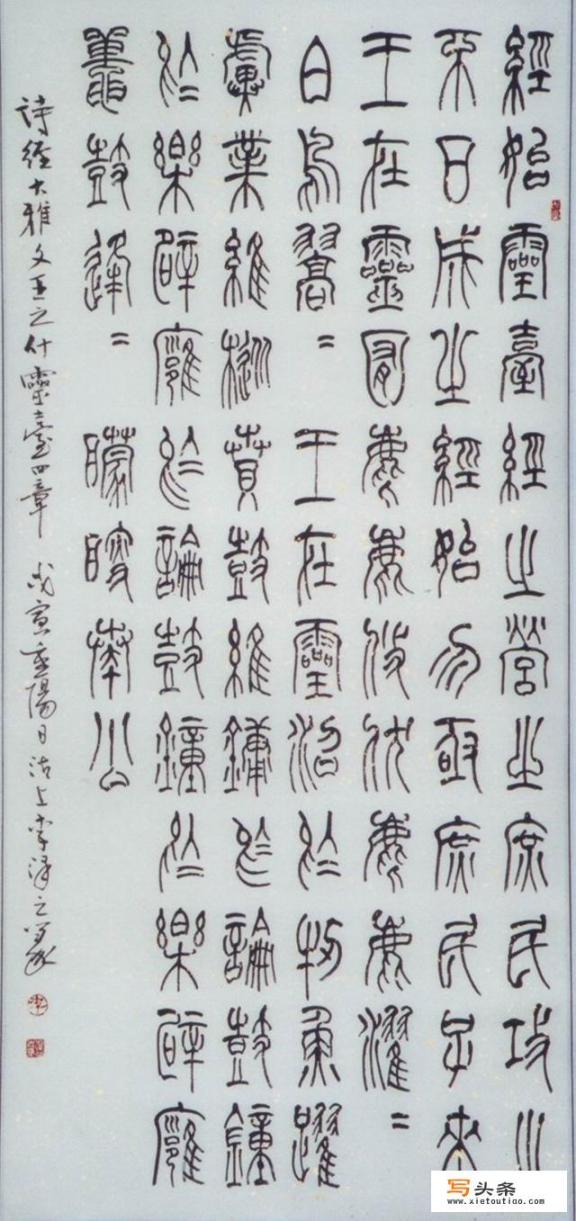 經始靈臺經之營之庶民攻之
不日成之經始勿亟庶民子來
王在靈囿麀鹿攸伏麀鹿濯=
白鳥翯=王在靈沼於牣魚躍
虡業維樅賁鼓維鏞於論鼓鐘
於樂辟廱於論鼓鐘於樂辟廱
鼉鼓逢=矇瞍奏公
詩經大雅文王之什靈臺四章 戊寅重陽日沽上李澤之篆
写头条
www.xietoutiao.com